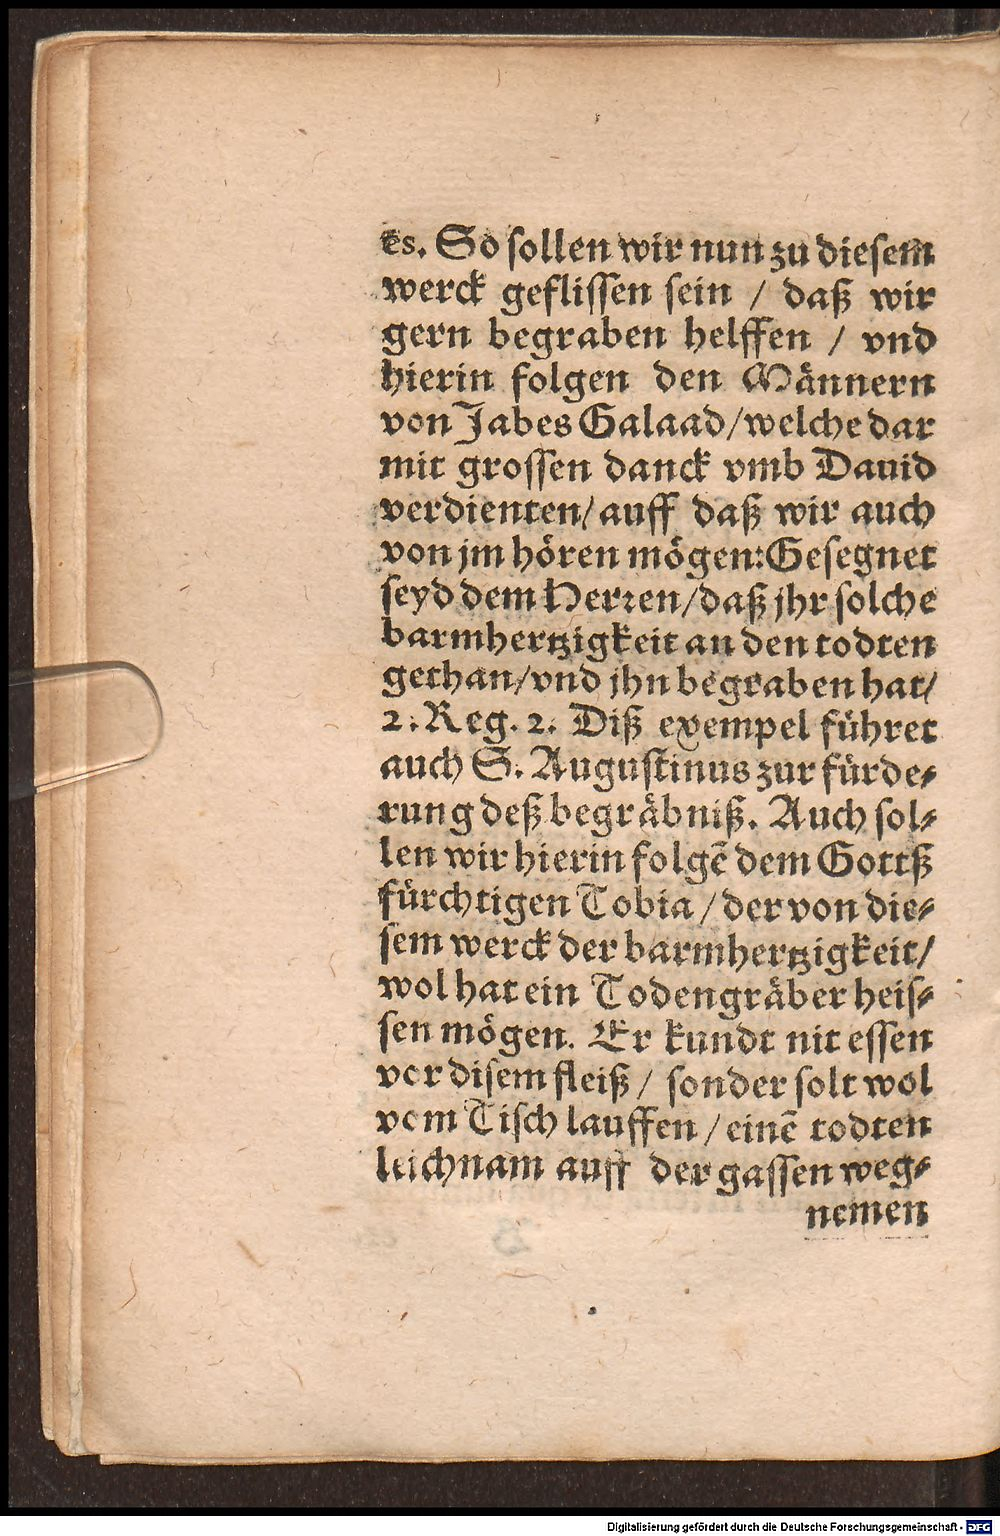 es. So sollen wir nun zu diesem
werck geflissen sein / daß wir
gern begraben helffen / vnd
hierin folgen den Männern
von Jabes Galaad/welche dar
mit grossen danck vmb Dauid
verdienten/auff daß wir auch
von jm hören mögen:Gesegnet
seyd dem Herren/daß jhr solche
barmhertzigkeit an den todten
gethan/vnd jhn begraben hat/
2. Reg. 2. Diß exempel führet
auch S. Augustinus zur fürde⸗
rung deß begräbniß. Auch sol⸗
len wir hierin folgẽ dem Gottß
fürchtigen Tobia / der von die⸗
sem werck der barmhertzigkeit/
wol hat ein Todengräber heis⸗
sen mögen. Er kundt nit essen
vor disem fleiß / sonder solt wol
vom Tisch lauffen / einẽ todten
leichnam auff der gassen weg⸗
nemen
Digitalisierung gefördert durch die Deutsche Forschungsgemeinschaft - DFG